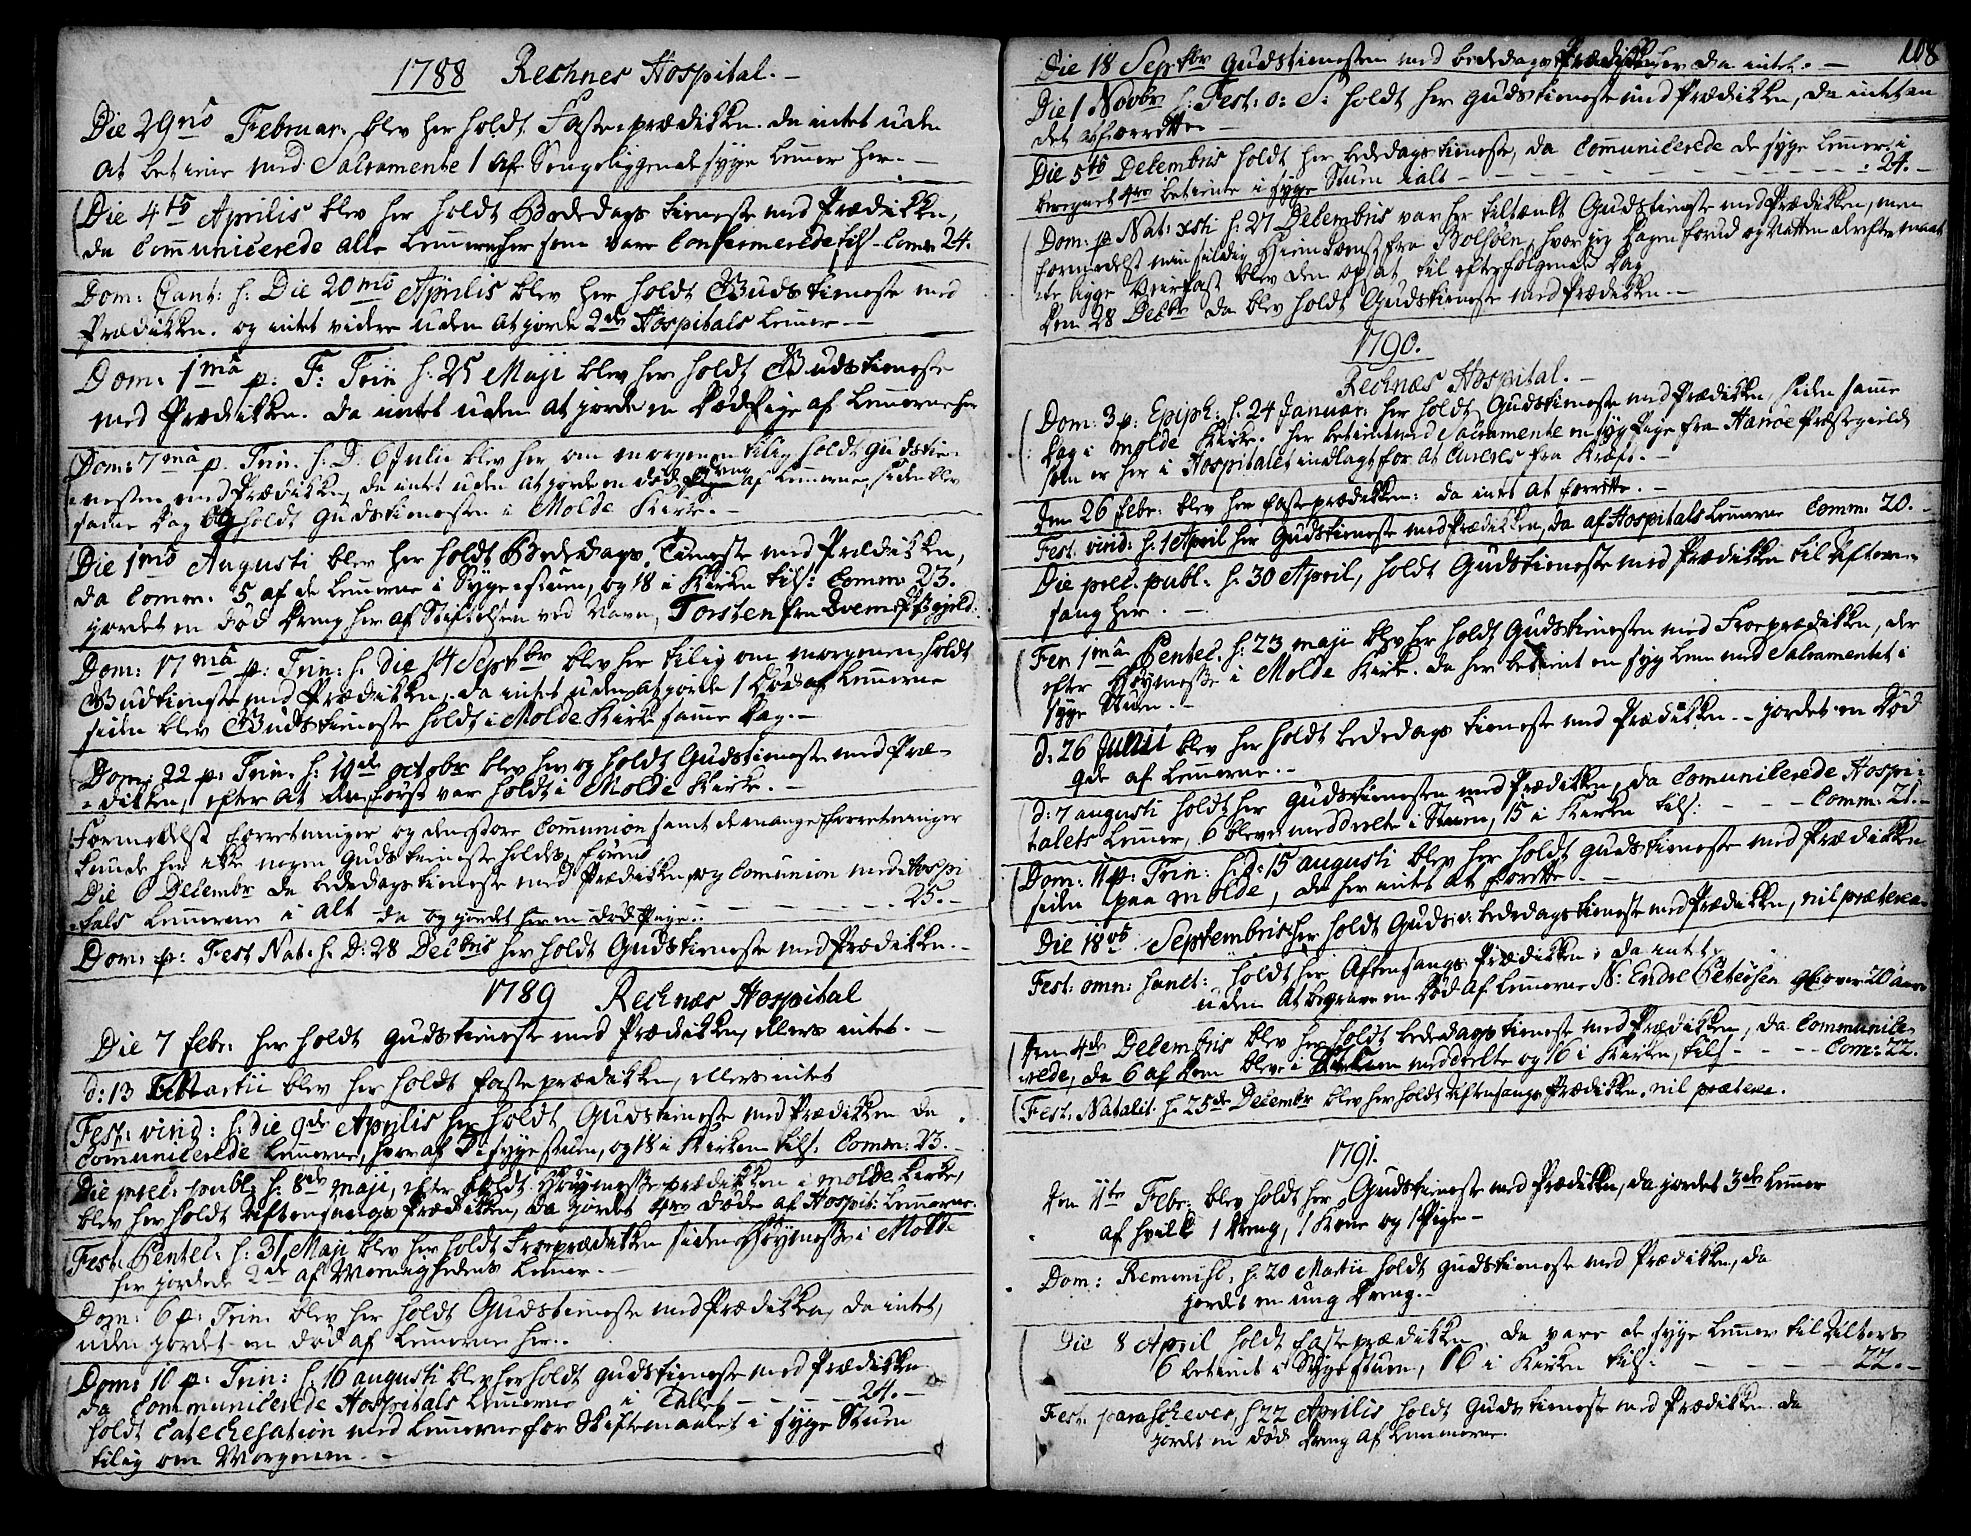 1788 Rechnes Hospital.-
Die 29no Februar. blev her holdt Faste-prædikken. da intet uden
at betiene med Sacramente 1 af Sengeliggende syge Lemer her.-
Die 4to Aprilis blev her holdt Bededags tieneste med Prædikken,
da Comunicerede alle Lemer her som vare Confirmerede tils- Comm: 24.
Dom: Cant: h: Die 20mo Aprilis blev her holdt Guds tieneste med
Prædikken. og intet videre uden at jorde 2de Hospitals Lemer.-
Dom: 1ma p: F: Trin h: 25 Maji blev her holdt Gudstieneste
med Prædikken. da intet uden at jorde en død Pige af Lemerne her
Dom: 7ma p. Trin. h: D: 6 Julii blev her om morgenen tilig holdt Gudstie-
nesten med Prædikken, da intet uden at jorde en død dreng af Lemerne, siden blev
same Dag og holdt Gudstienesten i Molde Kirke.-
Die 1mo Augusti blev her holdt Bededags Tieneste med Prædikken,
da Comm: 5 af de Lemerne i Syge-stuen, og 18 i Kirken tils: Comm: 23.
jordet en død Dreng her af Stiftelsen ved Navn Torsten fra
Dom: 17ma p: Trin: h: die 14 Septbr blev her tilig om morgenen holdt
Gudtieneste med Prædikken, da intet uden at jorde 1 Død af Lemerne
siden blev Gudstieneste holdt i Molde Kirke same Dag.-
Dom: 22 p: Trin. h: 19de octobr blev her og holdt Gudstieneste med Præ-
=dikken, efter at den først var holdt i Molde Kirke.-
Formedelst forretninger og den store Comunion samt de mange forretninger
kunde her ikke nogen Gudstieneste holdes, førend
Die 6 Decembr da bededagstieneste med Prædikken, og Comunion med Hospi
tals Lemerne i alt - - - 25.-
da og jordet her en død Pige.
Dom: p: Fest Nat: h. D: 28 Decbris her holdt Gudstieneste med Prædikken.-
1789 Rechnæs Hospital
Die 7 febr: her holdt Gudstieneste med Prædikken, ellers intet.-
d: 13 Martii blev her holdt fasteprædikken, ellers intet
Fest: virid: h: die 9de Aprilis her holdt Gudstieneste med Prædikken da
Comunicerede Lemerne, hvoraf 5 i syge stuen, og 18 i Kirken tils: Comm: 23.-
Die prec: publ: h: 8de maji, efter holdt Høymesse prædikken i molde Kirke,
blev her holdt Aftensangs Prædikken, da jordet 4re døde af Hospit: Lemerne.
Fest: Pentec: h: 31 Maji blev her holdt Froeprædikken siden Høymesse i Molde
her jordede 2de af Lemer.-
Dom: 6 p: Trin. blev her holdt Gudstieneste med Prædikken, da intet,
uden jordet en død af Lemerne her.-
Dom: 10 p: Trin: h: 16 augusti blev her holdt gudstieneste med Prædikken
da Comunicerede Hospitals Lemerne i Tallet - - - 21.-
holdt Catechesation med Lemerne for Skiftemaalet i syge Stuen
tilig om Morgenen.-
108
Die 18 Septbr Gudstienesten med bededags Prædikken her da intet.-
Die 1 Novbr h: Fest: o: S: holdt her gudstieneste med Prædikken, da intet an
det at forrette-
Die 5te Decembris holdt her bededags tieneste, da Comunicerede de syge Lemer i
beregnet 4re betiente i syge Stuen ialt - - - 24.-
Dom: p Nat: xsti h: 27 Decembris var her tiltænkt Gudstieneste med Prædikken, men
formedelst min sildig Hiemkomst fra Bolsøen, hvor jeg Dagen forud og Natten derefter maat
te ligge Veirfast blev den opsat til efterfølgende Dag
den 28 Decbr da blev holdt Gudstieneste med Prædikken.-
1790.
Rechnæs Hospital.-
Dom: 3 p: Epiph: h: 24 Januar: her holdt Gudstieneste med Prædikken siden same
Dag i Molde Kirke. her betient med Sacramente en syg Pige fra Harøe Præstegield
som er her i Hospitalet indlagt for at cureres fra Kræft.-
Den 26 febr: blev her fasteprædikken: da intet at forrette.-
Fest: virid: h: 1 April her Gudstieneste med Prædikken, da af Hospitals Lemerne Comm: 20.-
Die prec: publ: h: 30 April, holdt Gudstieneste med Prædikken til Aften-
sang her.-
Fer: 1ma Pentec: h: 23 maji blev her holdt Gudstienesten med Froeprædikken, der
efter Høymesse i Molde Kirke. da her betient en syg Lem med Sacramentet i
syge Stuen.-
d: 26 Junii blev her holdt bededags tieneste med Prædikken.- jordet en Død
qde af Lemerne.-
d: 7 augusti holdt her gudstienesten med Prædikken, da Comunicerede Hospi=
talets Lemer, 6 bleve meddeelte i Stuen, 15 i Kirken tils: - - - Comm: 21.-
Dom: 11 p: Trin: h: d: 15 augusti blev her holdt gudstieneste med Prædikken
siden paa Molde, da her intet at forrette.-
Die 18vo Septembris her holdt Guds- bededagstieneste med Prædikken, nil præterea.
Fest: omn: sanct: holdt her Aftensangs Prædikken: da intet
uden at begrave en Død af Lemerne N: Endre Petersen gl: over 20 aar
Den 4de Decembris blev her holdt bededagstieneste med Prædikken, da Communice-
rede, da 6 af dem bleve i Stuen meddeelte og 16 i Kirken, tils - - - Com: 22.
Fest: Natalit: h: 25de Decembr blev her holdt Aftensangs Prædikken. nil præterea.
1791.
Den 11te Febr: blev holdt her Gudstieneste med Prædikken, da jordet 3de Lemer
af hvilke 1 Dreng, 1 Kone og 1 Pige-
Dom: Reminisc, h: 20 Martii holdt Gudstieneste med Prædikken, da
jordet en ung Dreng.-
Die 8 April holdt fasteprædikken. da vare de syge Lemer til Alters
6 betient i Sygestuen, 16 i Kirken tils: - - 22.-
Fest: parascheves, h 22 Aprilis holdt Gudstieneste med Prædikken. da
jordet en død Dreng af Lemmerne.